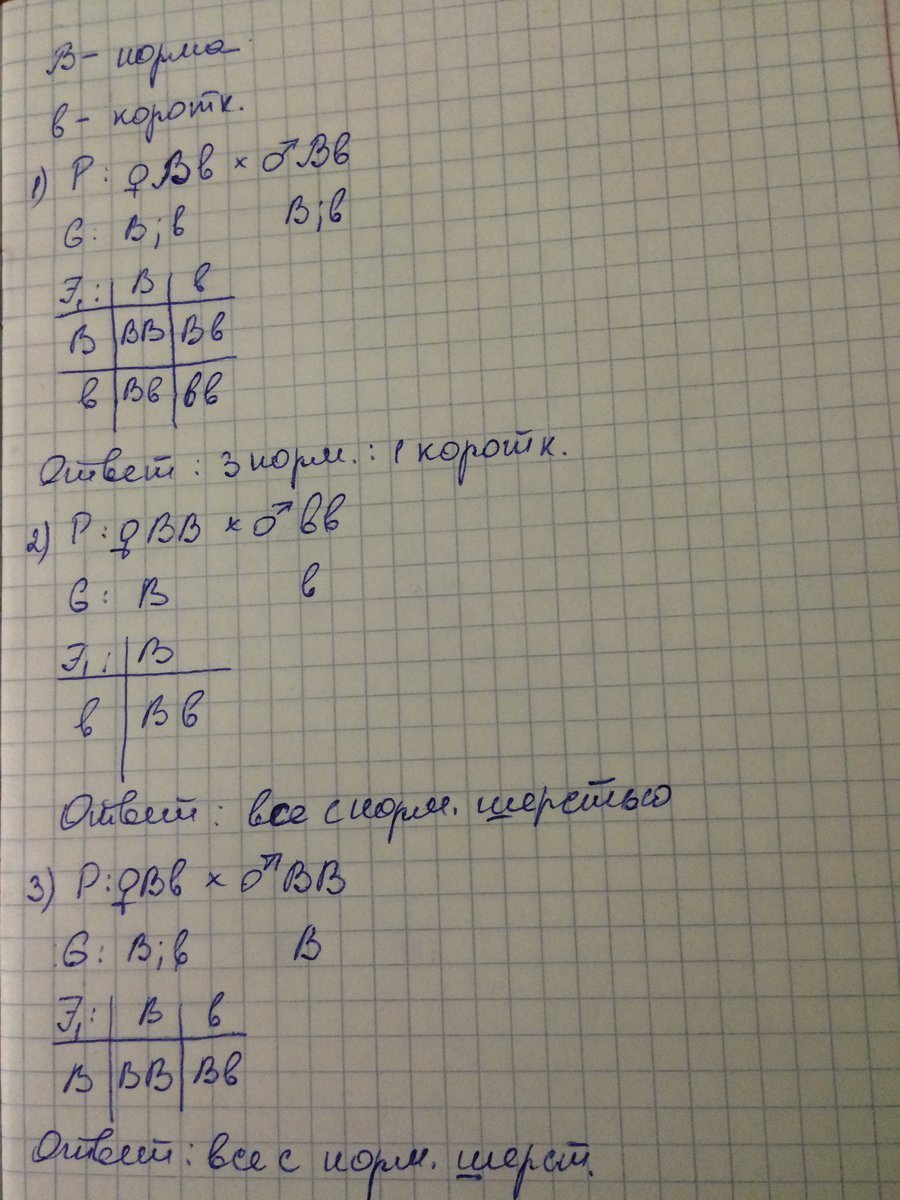 В – норма
в – коротк.
1) Р: ♀Вв × ♂Вв
G: В; в В; в
F₁: В в
В ВВ Вв
в Вв вв
Ответ: 3 норм. : 1 коротк.
2) Р: ♀ВВ × ♂вв
G: В в
F₁: В
в Вв
Ответ: все с норм. шерстью
3) Р: ♀Вв × ♂ВВ
G: В; в В
F₁: В в
В ВВ Вв
Ответ: все с норм. шерст.